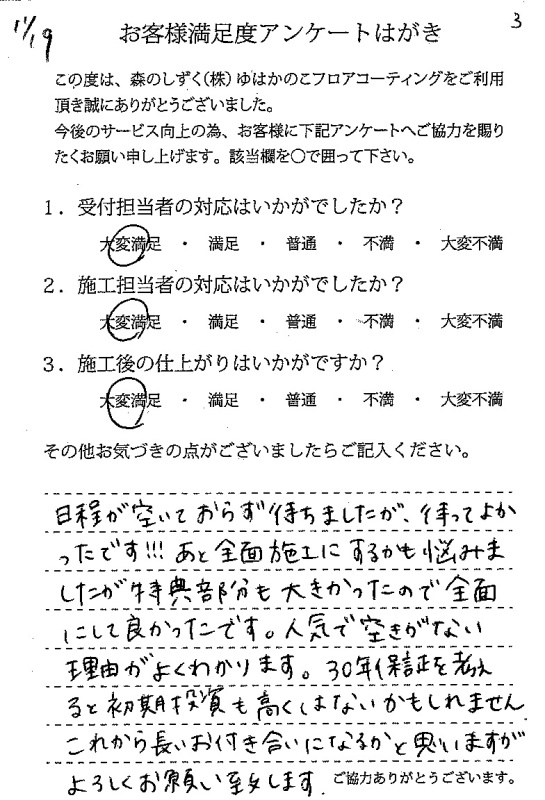 11/19
3
お客様満足度アンケートはがき
この度は、森のしずく(株)ゆはかのこフロアコーティングをご利用
頂き誠にありがとうございました。
今後のサービス向上の為、お客様に下記アンケートへご協力を賜り
たくお願い申し上げます。該当欄を○で囲って下さい。
1．受付担当者の対応はいかがでしたか？
大変満足 ・ 満足 ・ 普通 ・ 不満 ・ 大変不満
2．施工担当者の対応はいかがでしたか？
大変満足 ・ 満足 ・ 普通 ・ 不満 ・ 大変不満
3．施工後の仕上がりはいかがですか？
大変満足 ・ 満足 ・ 普通 ・ 不満 ・ 大変不満
その他お気づきの点がございましたらご記入ください。
日程が空いておらず待ちましたが、待ってよか
ったです!!! あと全面施工にするかも悩みま
したが特典部分も大きかったので全面
にして良かったです。人気で空きがない
理由がよくわかります。30年保証を考え
ると初期投資も高くはないかもしれません
これから長いお付き合いになるかと思いますが
よろしくお願い致します.
ご協力ありがとうございます。